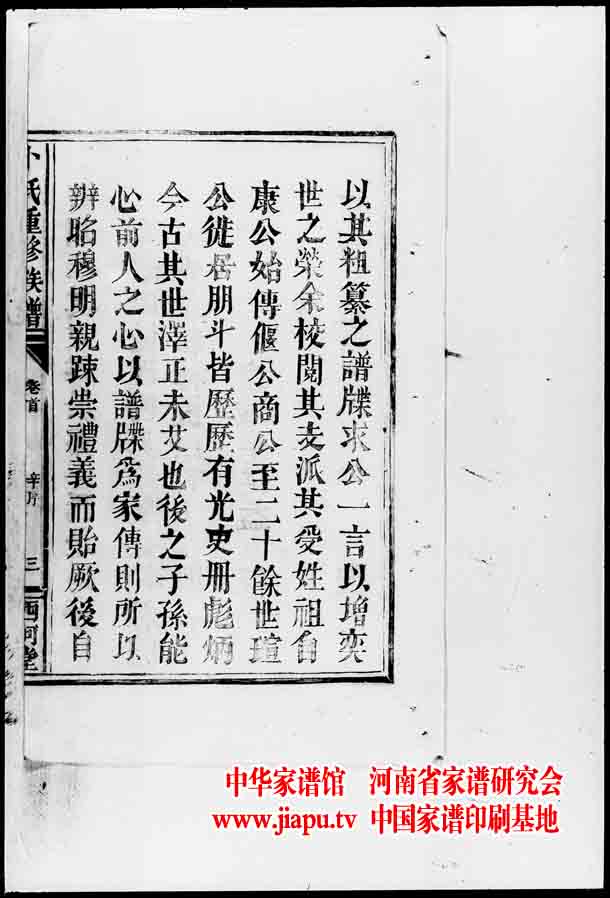 以其粗纂之譜牒求公一言以增奕
世之榮余校閱其支派其受姓祖自
康公始傳偃公商公至二十餘世瑄
公徙居朋斗皆歷歷有光史冊彪炳
今古其世澤正未艾也後之子孫能
心前人之心以譜牒為家傳則所以
辨昭穆明親踈崇禮義而貽厥後自
卜氏重修族譜
卷首
三
西河堂
中华家谱馆 河南省家谱研究会
www.jiapu.tv 中国家谱印刷基地